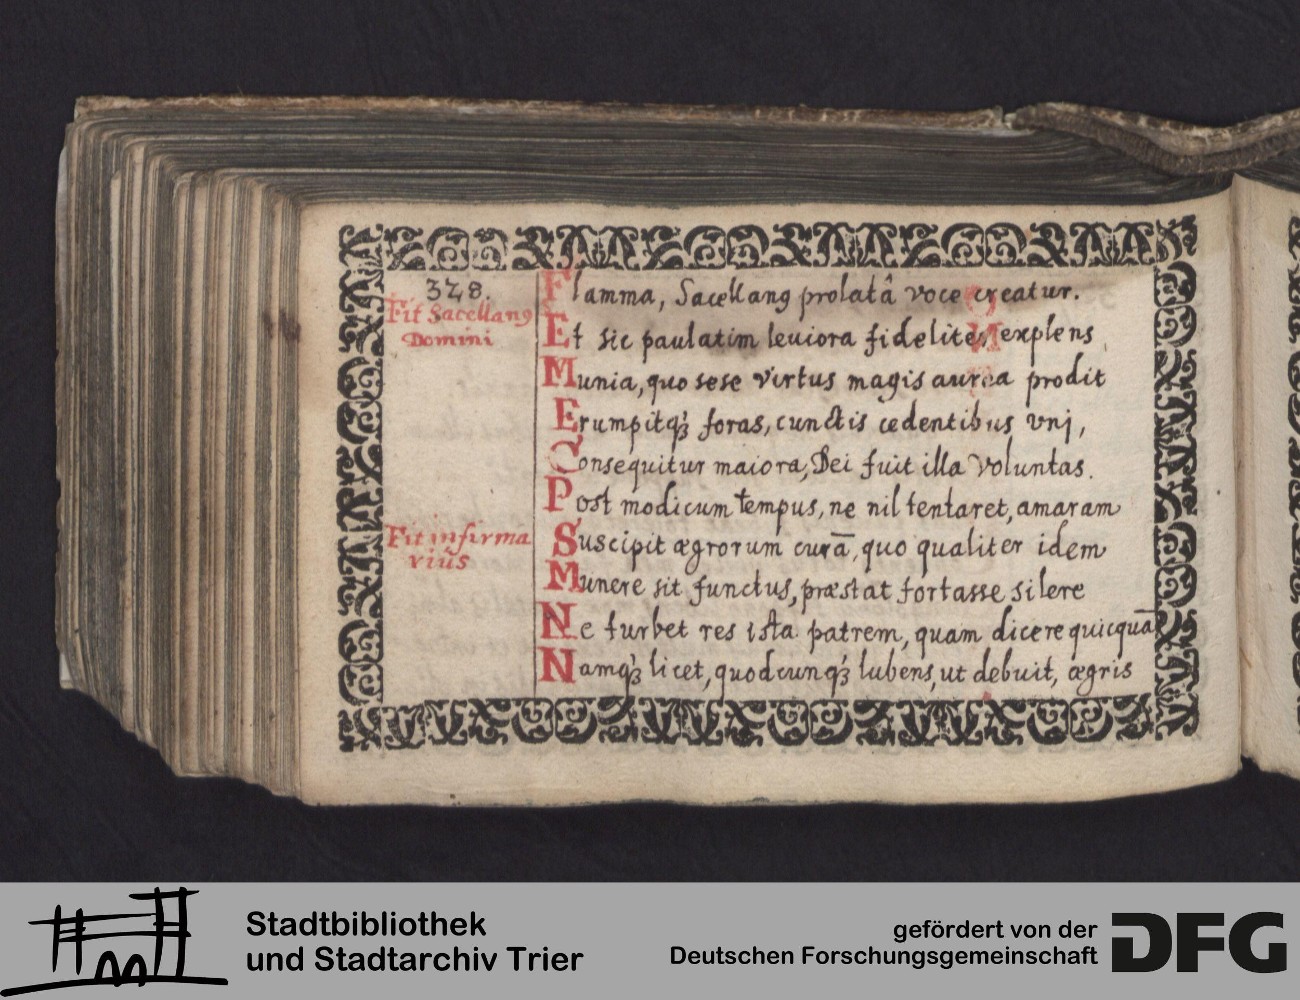 328.
Fit Sacellanꝯ
Domini
Flamma, Sacellanꝯ prolatâ voce creatur.
Et sic paulatim leuiora fideliter explens
Munia, quo sese virtus magis aurea prodit
Erumpitqꝫ foras, cunctis cedentibus vnj,
Consequitur maiora, Dei fuit illa voluntas.
Post modicum tempus, ne nil tentaret, amaram
Fit infirma
rius
Suscipit ægrorum curā, quo qualiter idem
Munere sit functus, præstat fortasse silere
Ne turbet res ista patrem, quam dicere quicquā
Namqꝫ licet, quodcunqꝫ lubens, ut debuit, ægris
Stadtbibliothek
und Stadtarchiv Trier
gefördert von der
Deutschen Forschungsgemeinschaft
DFG